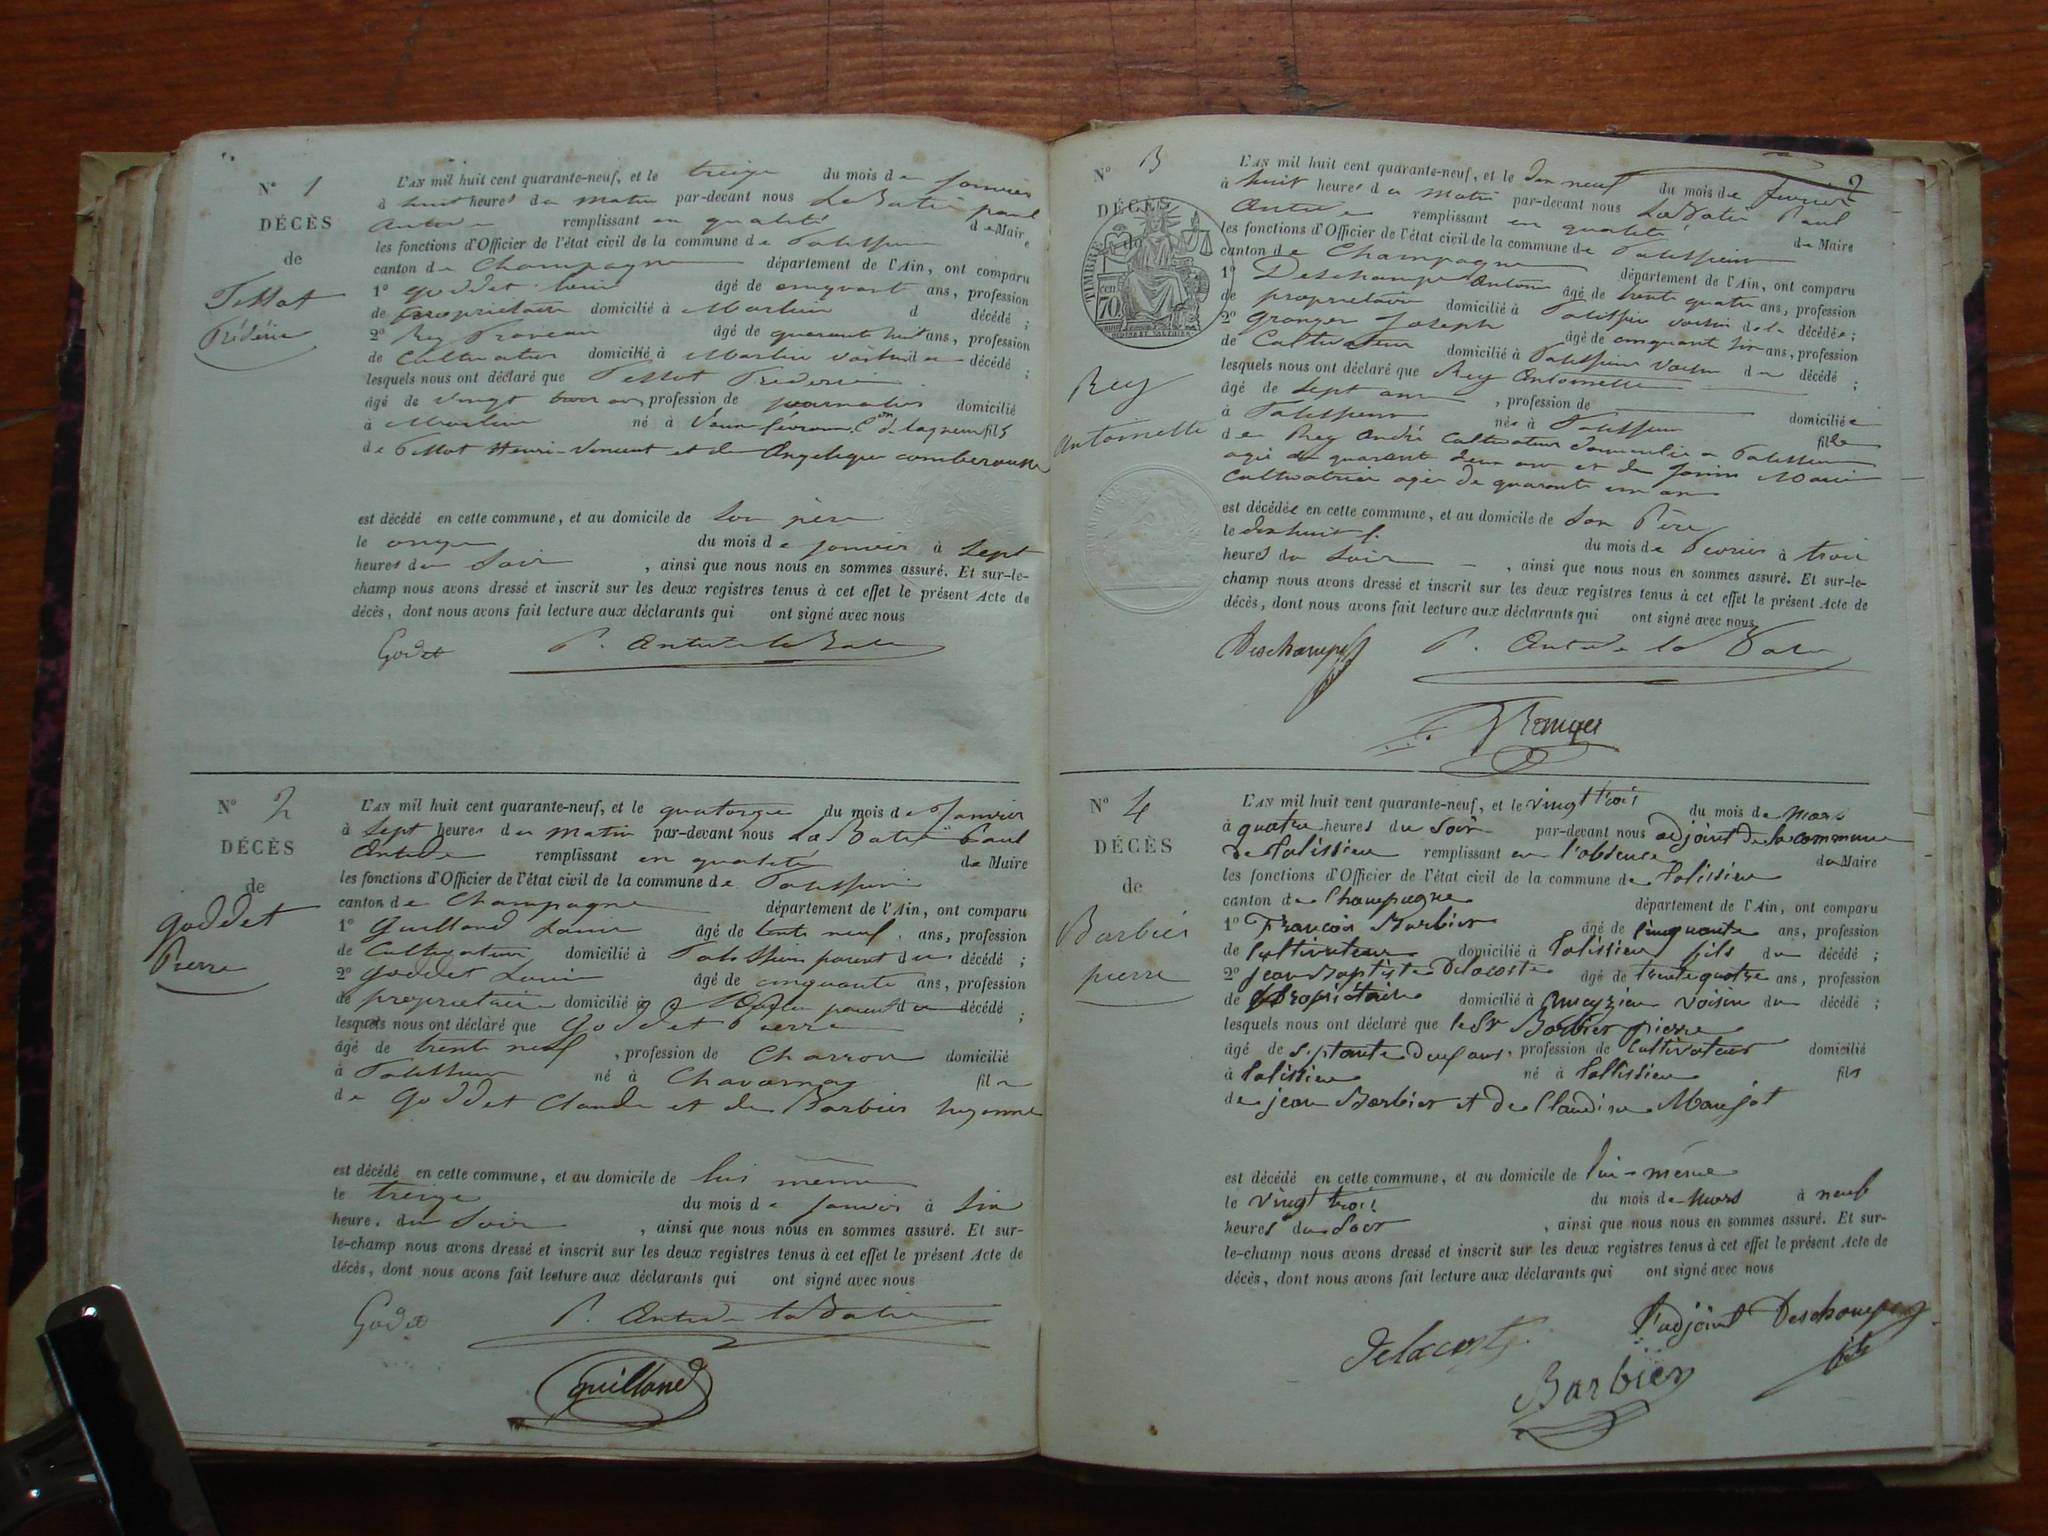 N° 1
DÉCÈS
de
Tessot
Frédéric
L'AN mil huit cent quarante-neuf, et le treize du mois de janvier
à huit heures du matin par-devant nous LaBatie paul
Antide remplissant en qualité de Maire
les fonctions d'Officier de l'état civil de la commune de Talissieu
canton de Champagne département de l'Ain, ont comparu
1° goddet louis âgé de cinquante ans, profession
de propriétaire domicilié à d décédé ;
2° Rey âgé de quarante huit ans, profession
de Cultivateur domicilié à voisin de décédé ;
lesquels nous ont déclaré que Tessot Frédéric
âgé de vingt ans, profession de journalier domicilié
à né à fils
de Tessot Henri Vincent et de Angelique
est décédé en cette commune, et au domicile de son père
le onze du mois de janvier à sept
heures du soir , ainsi que nous nous en sommes assuré. Et sur-le-
champ nous avons dressé et inscrit sur les deux registres tenus à cet effet le présent Acte de
décès, dont nous avons fait lecture aux déclarants qui ont signé avec nous
Godet P. Antide la Batie
N° 2
DÉCÈS
de
goddet
Pierre
L'AN mil huit cent quarante-neuf, et le quatorze du mois de Janvier
à sept heures du matin par-devant nous LaBatie Paul
Antide remplissant en qualité de Maire
les fonctions d'Officier de l'état civil de la commune de Talissieu
canton de Champagne département de l'Ain, ont comparu
1° Guilland Louis âgé de trente neuf ans, profession
de Cultivateur domicilié à Talissieu parent du décédé ;
2° goddet Louis âgé de cinquante ans, profession
de propriétaire domicilié à parent du décédé ;
lesquels nous ont déclaré que goddet Pierre
âgé de trente neuf , profession de Charron domicilié
à Talissieu né à Chavornay fils
de goddet Claude et de Barbier Suzanne
est décédé en cette commune, et au domicile de lui même
le treize du mois de janvier à six
heures du soir , ainsi que nous nous en sommes assuré. Et sur-
le-champ nous avons dressé et inscrit sur les deux registres tenus à cet effet le présent Acte de
décès, dont nous avons fait lecture aux déclarants qui ont signé avec nous
Godet P. Antide la Batie
guilland
2
N° 3
DÉCÈS
de
TIMBRE
70
Rey
Antoinette
L'AN mil huit cent quarante-neuf, et le dix neuf du mois de février
à huit heures du matin par-devant nous LaBatie Paul
Antide remplissant en qualité de Maire
les fonctions d'Officier de l'état civil de la commune de Talissieu
canton de Champagne département de l'Ain, ont comparu
1° Deschamps Antoine âgé de trente quatre ans, profession
de propriétaire domicilié à Talissieu voisin de la décédée ;
2° Granger Joseph âgé de cinquante six ans, profession
de Cultivateur domicilié à Talissieu voisin de décédé ;
lesquels nous ont déclaré que Rey Antoinette
âgé de sept ans , profession de domiciliée
à Talissieu née à Talissieu fille
de Rey André Cultivateur domicilié a Talissieu
agé de quarante deux ans et de Marie
Cultivatrice agée de quarante un ans
est décédée en cette commune, et au domicile de son Père
le dix huit du mois de février à trois
heures du soir , ainsi que nous nous en sommes assuré. Et sur-le-
champ nous avons dressé et inscrit sur les deux registres tenus à cet effet le présent Acte de
décès, dont nous avons fait lecture aux déclarants qui ont signé avec nous
Deschamps P. Antide la Batie
N° 4
DÉCÈS
de
Barbier
pierre
L'AN mil huit cent quarante-neuf, et le vingt trois du mois de Mars
à quatre heures du soir par-devant nous adjoint de la commune
de talissieu remplissant en l'absence du Maire
les fonctions d'Officier de l'état civil de la commune de talissieu
canton de Champagne département de l'Ain, ont comparu
1° François Barbier âgé de cinquante ans, profession
de Cultivateur domicilié à talissieu fils du décédé ;
2° jean Baptiste Delacoste âgé de trente quatre ans, profession
de propriétaire domicilié à ameyzieu voisin du décédé ;
lesquels nous ont déclaré que le Sr Barbier pierre
âgé de septante deux ans, profession de Cultivateur domicilié
à talissieu né à tallissieu fils
de jean Barbier et de Claudine
est décédé en cette commune, et au domicile de lui-même
le vingt trois du mois de Mars à neuf
heures du soir , ainsi que nous nous en sommes assuré. Et sur-
le-champ nous avons dressé et inscrit sur les deux registres tenus à cet effet le présent Acte de
décès, dont nous avons fait lecture aux déclarants qui ont signé avec nous
Delacoste l'adjoint Deschamps
Barbier